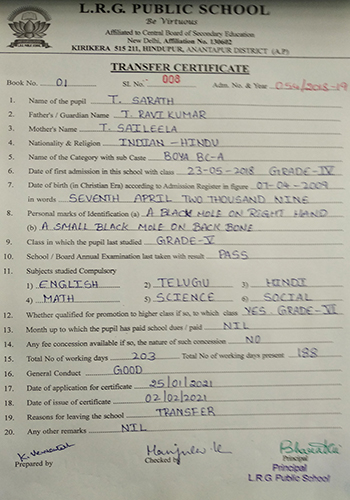 L.R.G. PUBLIC SCHOOL
Be Virtuous
Affiliated to Central Board of Secondary Education
New Delhi, Affiliation No. 130602
KIRIKERA 515 211, HINDUPUR, ANANTAPUR DISTRICT (A.P)
TRANSFER CERTIFICATE
Book No. 01 Sl. No. 008 Adm. No. & Year 054/2018-19
1. Name of the pupil T. SARATH
2. Father's / Guardian Name T. RAVI KUMAR
3. Mother's Name T. SAILEELA
4. Nationality & Religion INDIAN - HINDU
5. Name of the Category with sub Caste BOYA BC-A
6. Date of first admission in this school with class 23-05-2018 GRADE-IV
7. Date of birth (in Christian Era) according to Admission Register in figure 07-04-2009
in words SEVENTH APRIL TWO THOUSAND NINE
8. Personal marks of Identification (a) A BLACK MOLE ON RIGHT HAND
(b) A SMALL BLACK MOLE ON BACK BONE
9. Class in which the pupil last studied GRADE-V
10. School / Board Annual Examination last taken with result PASS
11. Subjects studied Compulsory
1) ENGLISH 2) TELUGU 3) HINDI
4) MATH 5) SCIENCE 6) SOCIAL
12. Whether qualified for promotion to higher class if so, to which class YES GRADE-VI
13. Month up to which the pupil has paid school dues / paid NIL
14. Any fee concession available if so, the nature of such concession NO
15. Total No of working days 203 Total No of working days present 188
16. General Conduct GOOD
17. Date of application for certificate 25/01/2021
18. Date of issue of certificate 02/02/2021
19. Reasons for leaving the school TRANSFER
20. Any other remarks NIL
Prepared by Checked by Principal
Principal
L.R.G. Public School